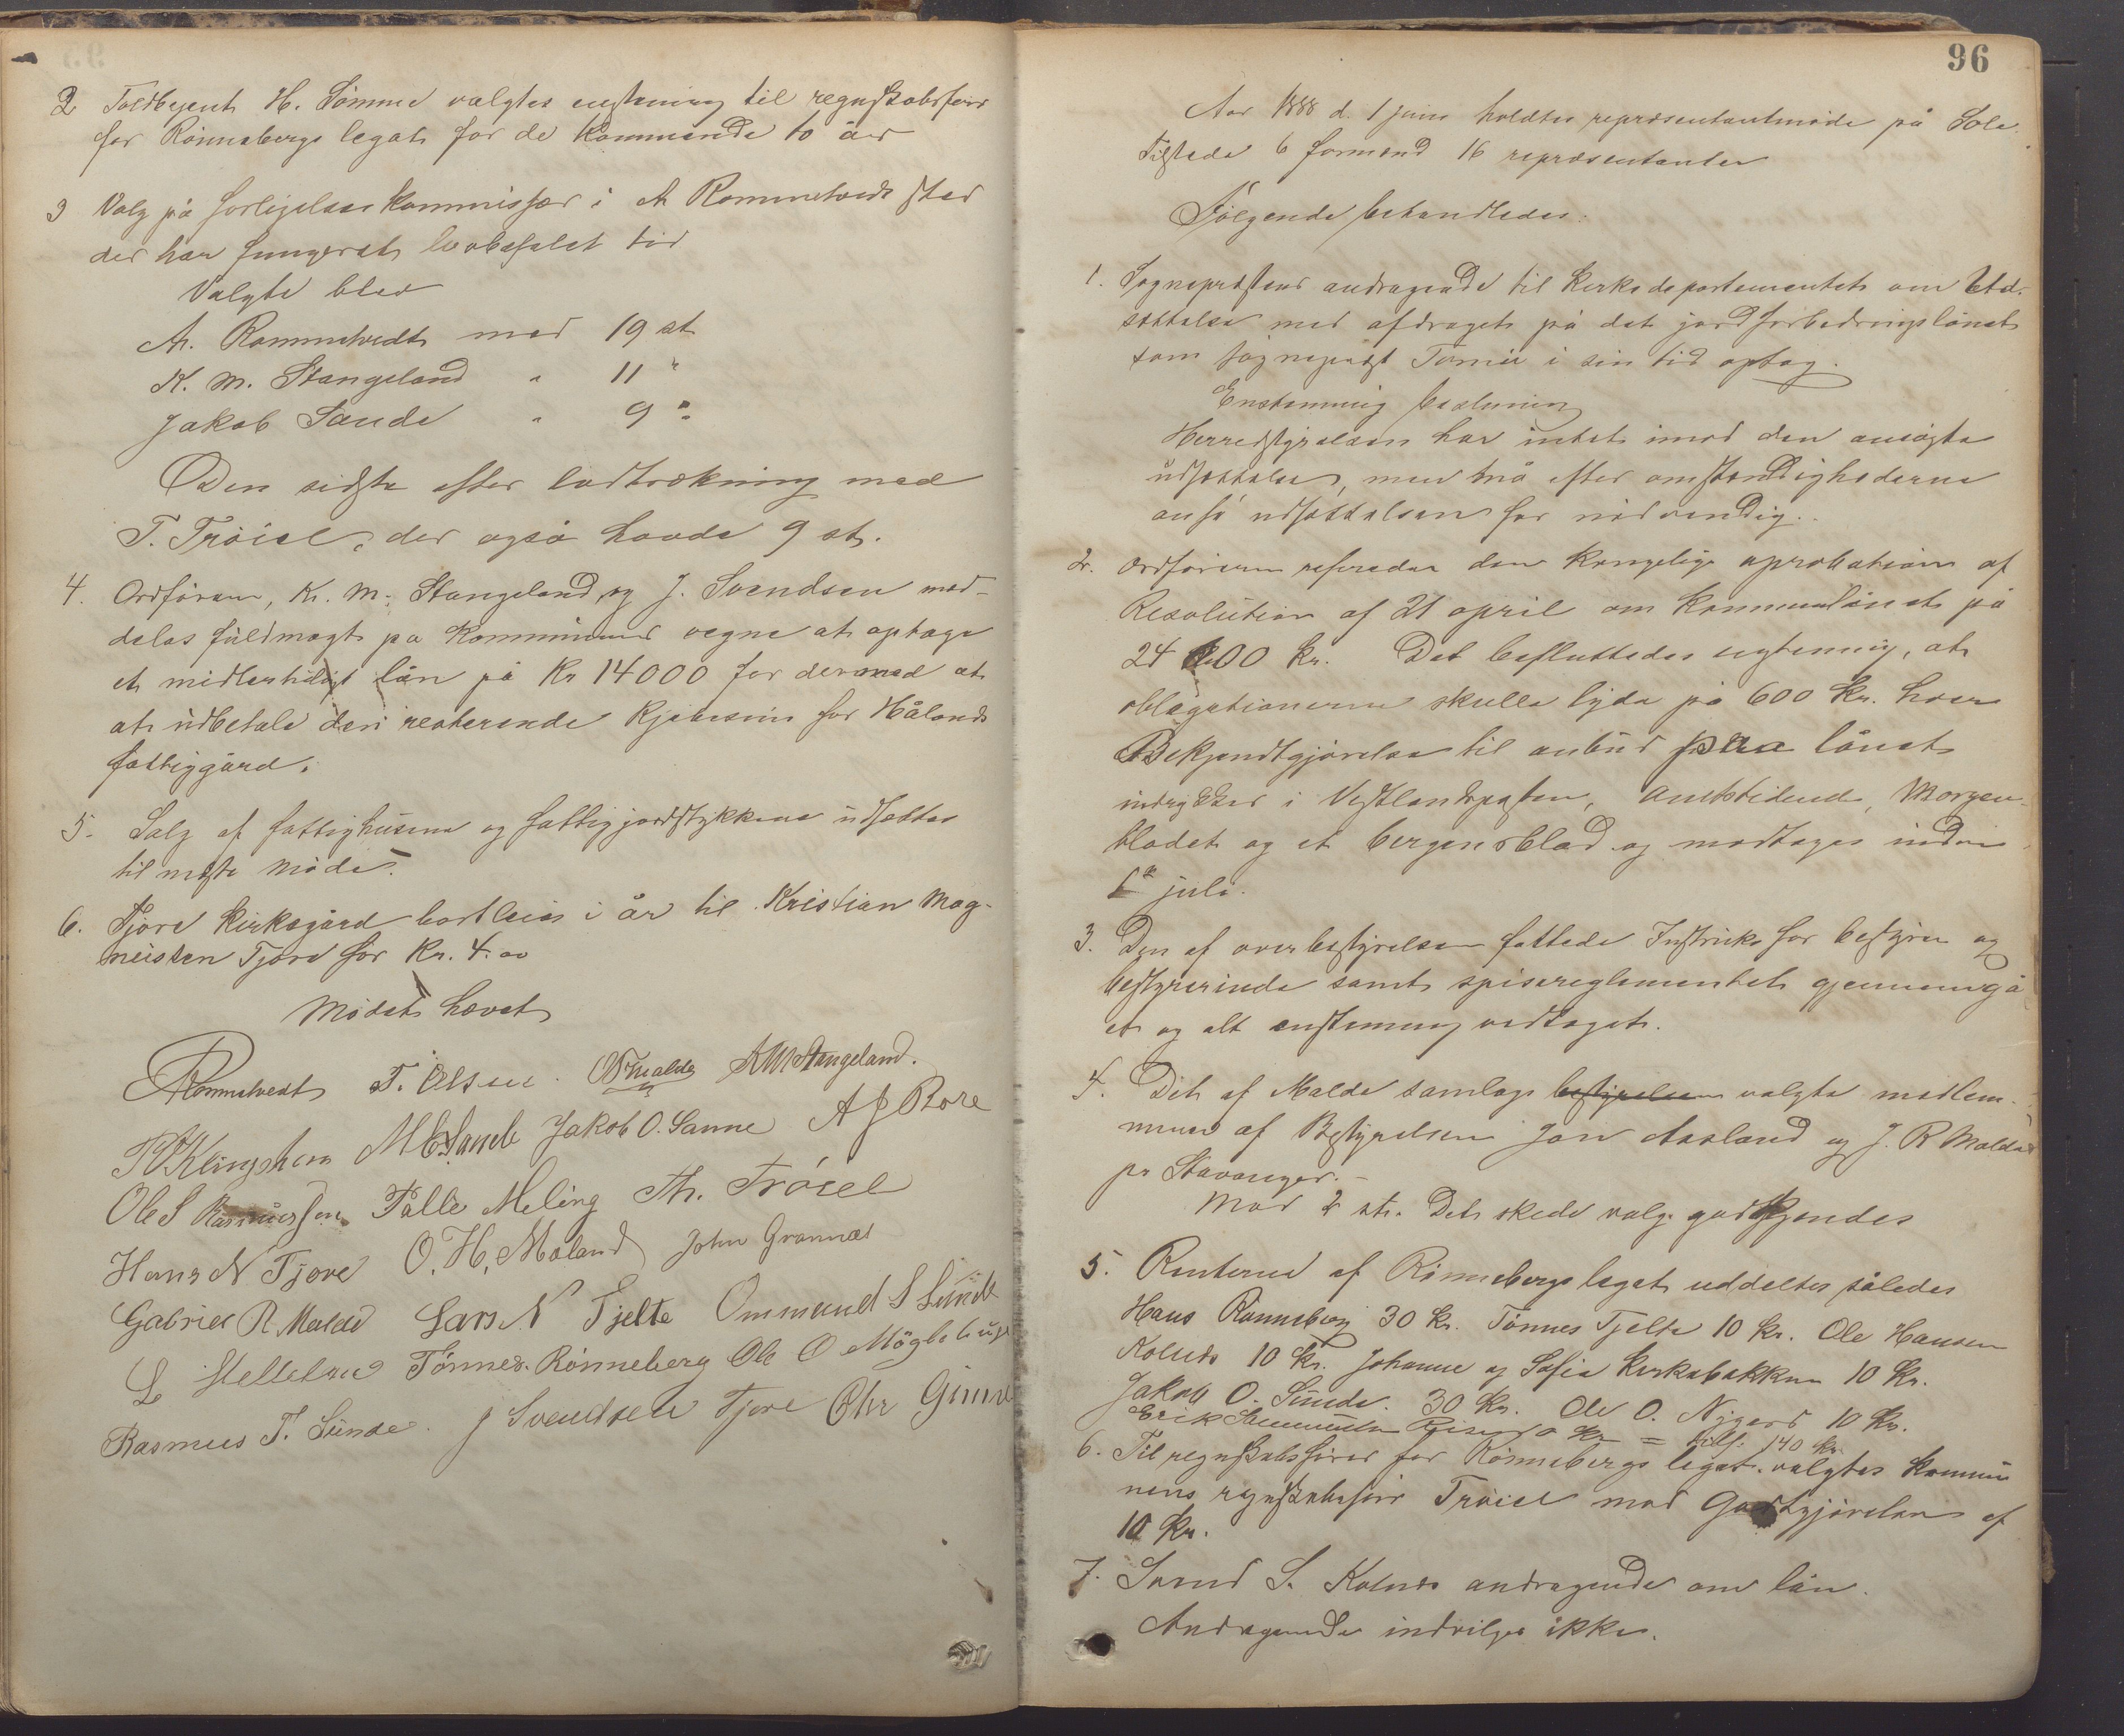 2 Toldbejent H. Sömme valgtes enstemmig til regnskabsförer
for Rönnebergs legat for de kommende to år
3 Valg på forligelseskommissær i A Rommetvedt sted
der har fungeret lovbefalet tid
Valgte blev
A. Rommetvedt med 19 st
K. M. Stangeland " 11 "
Jakob Sande " 9 "
Den sidste efter lodtrækning med
T. Tröiel, der også havde 9 st.
4. Ordföreren, K. M. Stangeland og J. Svendsen med-
deles fuldmagt på kommunens vegne at optage
et midlertidigt lån på Kr 14000 for dermed at
at udbetale den resterende kjøbesum for Hålands
fattiggård.
5. Salg af fattighusene og fattigjordstykkene udsettes
til næste möde.
6. Tjore kirkegård bortleies i år til Kristian Mag-
neussen Tjore for Kr. 4.00
Mödet hævet
ARommetvedt T. Olsen. OTMalde KMStangeland.
POKlingsheim MESande Jakob O. Sanne A J Rore
Ole S Rasmussen Palle Meling Th. Tröiel
Hans N Tjore O. H. Mæland John Grannes
Gabriel R Malde Lars N Tjelte Ommund S Sunde
L Hellestveit Tönnes Rönneberg Ole O Möglebust
Rasmus T. Sunde. J Svendsen Tjore Chr Gimre
96
Aar 1888 d. 1 juni holdtes repræsentantmöde på Sole.
Tilstede 6 formænd 16 repræsentanter
Fölgende behandledes:
1. Sogneprestens andragende til kirkedepartementet om Ud-
settelse med afdraget på det jordforbedringslånet
som sogneprest Tomér i sin tid optog.
Enstemmig beslutning
Herredstyrelsen har intet imod den ansögte
udsættelse, men må efter omstendighederne
anse udsættelsen for nödvendig.
2. Ordföreren refererede den kongelige aprobations af
Resolution af 21 april om kommunelånet på
24 000 kr. Det besluttedes enstemmig, at
obligationerne skulle lyde på 600 kr. hver
Bekjendtgjörelse til anbud på lånet
indrykkes i Vestlandsposten, Amtstidende, Morgen-
bladet og et bergensblad og modtages inden
1ste juli.
3. Den af overbestyrelsen fattede Instruks for bestyrer og
bestyrerinde samt spisereglementet gjennemgå-
et og alt enstemmig vedtaget.
4. Det af Malde samlags bestyrelsen valgte medlem-
mer af Bestyrelsen Jon Aasland og J. R Malde
pr Stavanger. –
Mod 2 st. Det skede valg godkjendes
5. Renterne af Rönnebergs legat uddeltes således
Hans Rönneberg 30 kr. Tönnes Tjelte 10 kr. Ole Hansen
Kolnes 10 kr. Johanne og Sofie kirkebakken 10 kr.
Jakob O. Sunde. 30 kr. Ole O. Nygard 10 kr.
Erik Samuelsen Risa 40 kr = tills. 140 kr
6. Til regnskabsförer for Rönnebergs legat valgtes kommu
nens regnskabsförer Tröiel mod Godtgjörelse af
10 kr.
7. Svend S. Kolnes andragende om lån.
Andragende indvilges ikke.